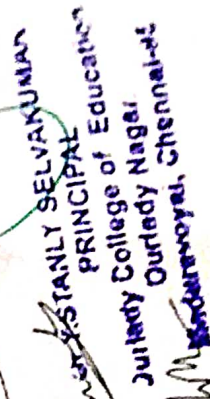 STANLY SELVAKUMAR
PRINCIPAL
College of Education
Ourlady Nagar
Chennai